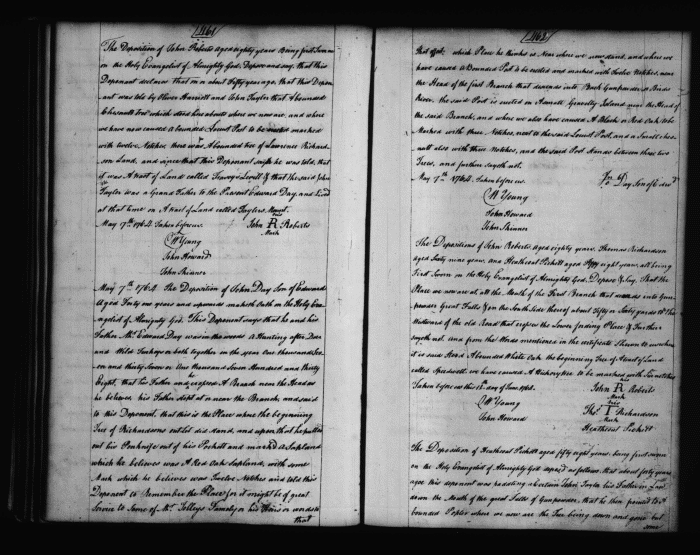 461
The Deposition of John Roberts aged eighty years Being first Sworn
on the Holy Evangelist of Almighty God, Depose and say, that this
Deponant declares that on or about fifty years ago, that this Depon
ant was told by Oliver Harriott and John Taylor that A bounded
Chesnutt Tree which stood here abouts where we now are, and where
we have now caused A bounded Locust Post to be erected marked
with twelve Notches, there was A bounded tree of Lawrence Richard-
son Land, and since that this Deponant says he was told, that
it was A tract of Land called Lovell & that the said John
Taylor was a Grand Father to the Present Edward Day, and Lived
at that time on A tract of Land called Taylors Mount.
May 17th 1764 Taken before us. John R Roberts
his
Mark
W Young
John Howard
John Skinner
May 17th 1764. The Deposition of John Day Son of Edward
Aged Forty one years and upwards maketh Oath on the Holy Evan
gelist of Almighty God. This Deponant says that he and his
Father Mr. Edward Day was in the woods A Hunting after Deer
and Wild Turkeys or both together in the year One thousand Sev
en and thirty Seven or One thousand Seven Hundred and thirty
Eight, that his Father and he crossed A Branch near the Head as
he believes, his Father stopt at or near the Branch, and said
to this Deponent, that this is the Place where the beginning
Tree of Richardsons outlet did stand, and upon that he pulled
out his Penknife out of his Pockett and marked A Sapland
which he believes was A Red Oak Sapland, with some
Mark which he believes was Twelve Notches and told this
Deponent to Remember the Place for it might be of great
Service to Some of Mr. Tolleys Family or his Heirs or words to
that
462
that effect; which Place he thinks is Near where we now stand, and where we
have caused A Bounded Post to be erected and marked with Twelve Notches, near
the Head of the first Branch that descends into Gunpowder or Birds
River, the said Post is erected on A small Gravelly Island near the Head of
the said Branch, and where we also have caused A Black or Red Oak to be
Marked with three Notches, next to the said Locust Post, and a Small ches-
nutt also with three Notches, and the said Post stands between these two
Trees, and further sayeth not.
May 17th 1764. Taken before us. Jno Day Son of Edwd
W Young
John Howard
John Skinner
The Depositions of John Roberts Aged eighty years, Thomas Richardson
aged Sixty nine years, and Heathcoat Pickett aged Fifty eight years, all being
First Sworn on the Holy Evangelist of Almighty God, Depose & say, that the
Place we now are at the Mouth of the First Branch that into Gun-
powder Great Falls & on the South Side thereof about Fifty or Sixty yards to the
Westward of the old Road that crosses the Lower fording Place & Further
sayeth not. and from the Words mentioned in the certificate Shewn to us where
it is said Stood A bounded White Oak the beginning Tree of A tract of Land
called Speedwell; we have caused A Hickory Tree to be marked with Six notches
Taken before us this 12th day of June 1764.
his
John R Roberts
Mark
W Young
his
Thos T Richardson
Mark
John Howard
Heathcoat Pickett
The Deposition of Heathcoat Pickett aged fifty eight years, being first sworn
on the Holy Evangelist of Almighty God deposes as follows, that about forty years
ago this deponent was padling a Certain John Taylor his Father in Law
down the Mouth of the great Falls of Gunpowder, that he then pointed to A
bounded Popler where we now are the Tree being down and gone but
some